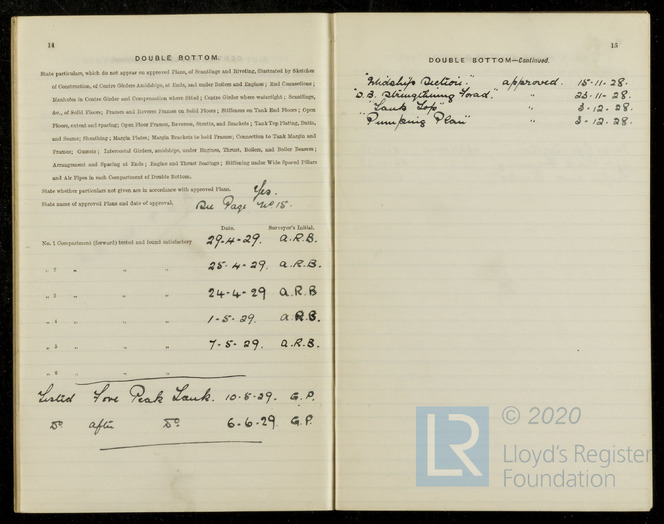 14
DOUBLE BOTTOM.
State particulars, which do not appear on approved Plans, of Scantlings and Riveting, illustrated by Sketches
of Construction, of Centre Girders Amidships, at Ends, and under Boilers and Engines; End Connections;
Manholes in Centre Girder and Compensation where fitted; Centre Girder where watertight; Scantlings,
&c., of Solid Floors; Frames and Reverse Frames on Solid Floors; Stiffeners on Tank End Floors; Open
Floors, extent and spacing; Open Floor Frames, Reverses, Struts, and Brackets; Tank Top Plating, Butts,
and Seams; Sheathing; Margin Plates; Margin Brackets to hold Frames; Connection to Tank Margin and
Frames; Gussets; Intercostal Girders, amidships, under Engines, Thrust, Boilers, and Boiler Bearers;
Arrangement and Spacing at Ends; Engine and Thrust Seatings; Stiffening under Wide Spaced Pillars
and Air Pipes in each Compartment of Double Bottom.
State whether particulars not given are in accordance with approved Plans. Yes.
State name of approved Plans and date of approval. See Page No 15.
Date. Surveyor's Initial.
No. 1 Compartment (forward) tested and found satisfactory 29-4-29. A.R.B.
„ 2 „ „ „ 25-4-29. A.R.B.
„ 3 „ „ „ 24-4-29 A.R.B
„ 4 „ „ „ 1-5-29. A.R.B.
„ 5 „ „ „ 7-5-29. A.R.B.
„ 6 „ „ „
Tested Fore Peak Tank. 10-5-29. G.P.
Do after Do 6-6-29. G.P.
15
DOUBLE BOTTOM—Continued.
"Midship Section." approved. 15-11-28.
"D.B. Strengthening Forwd." „ 23-11-28.
"Tank Top" „ 3-12-28.
"Pumping Plan" „ 3-12-28.
© 2020
LR
Lloyd's Register
Foundation